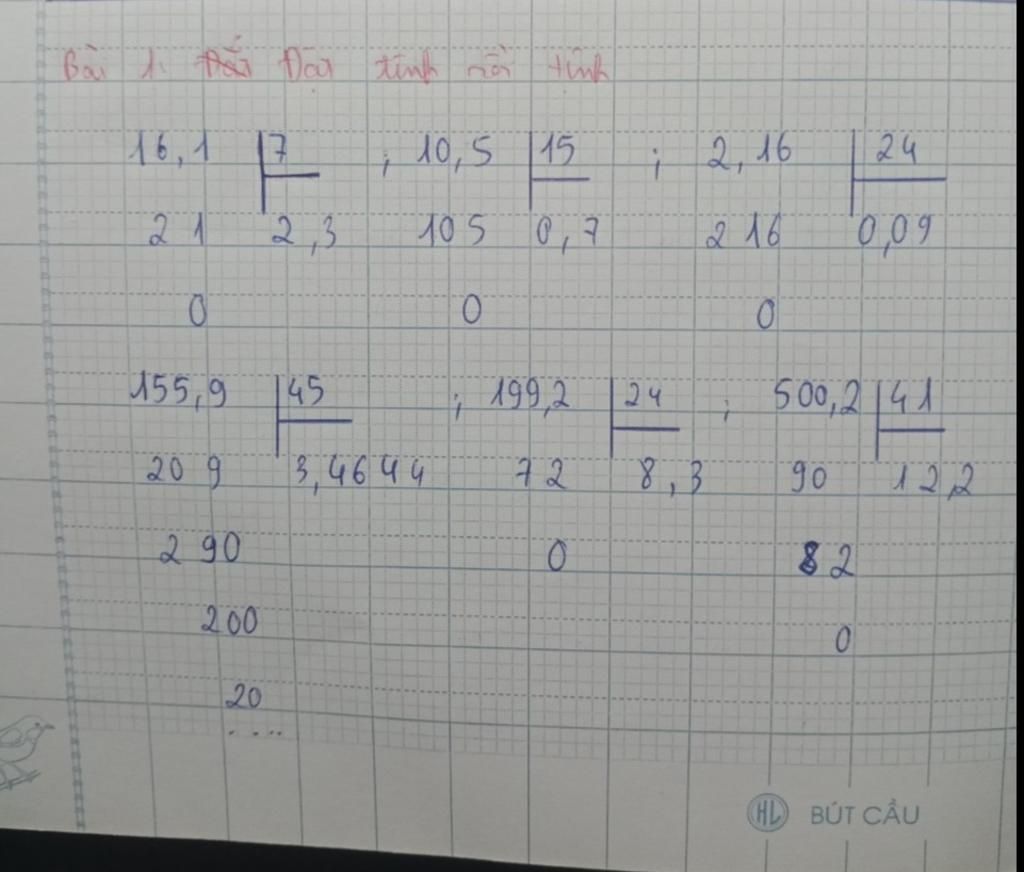 Bài 1. Đặt tính rồi tính
16,1 7 ; 10,5 15 ; 2,16 24
21 2,3 105 0,7 216 0,09
0 0 0
155,9 45 ; 199,2 24 ; 500,2 41
209 3,4644 72 8,3 90 12,2
290 0 82
200 0
20
....
HL BÚT CẦU